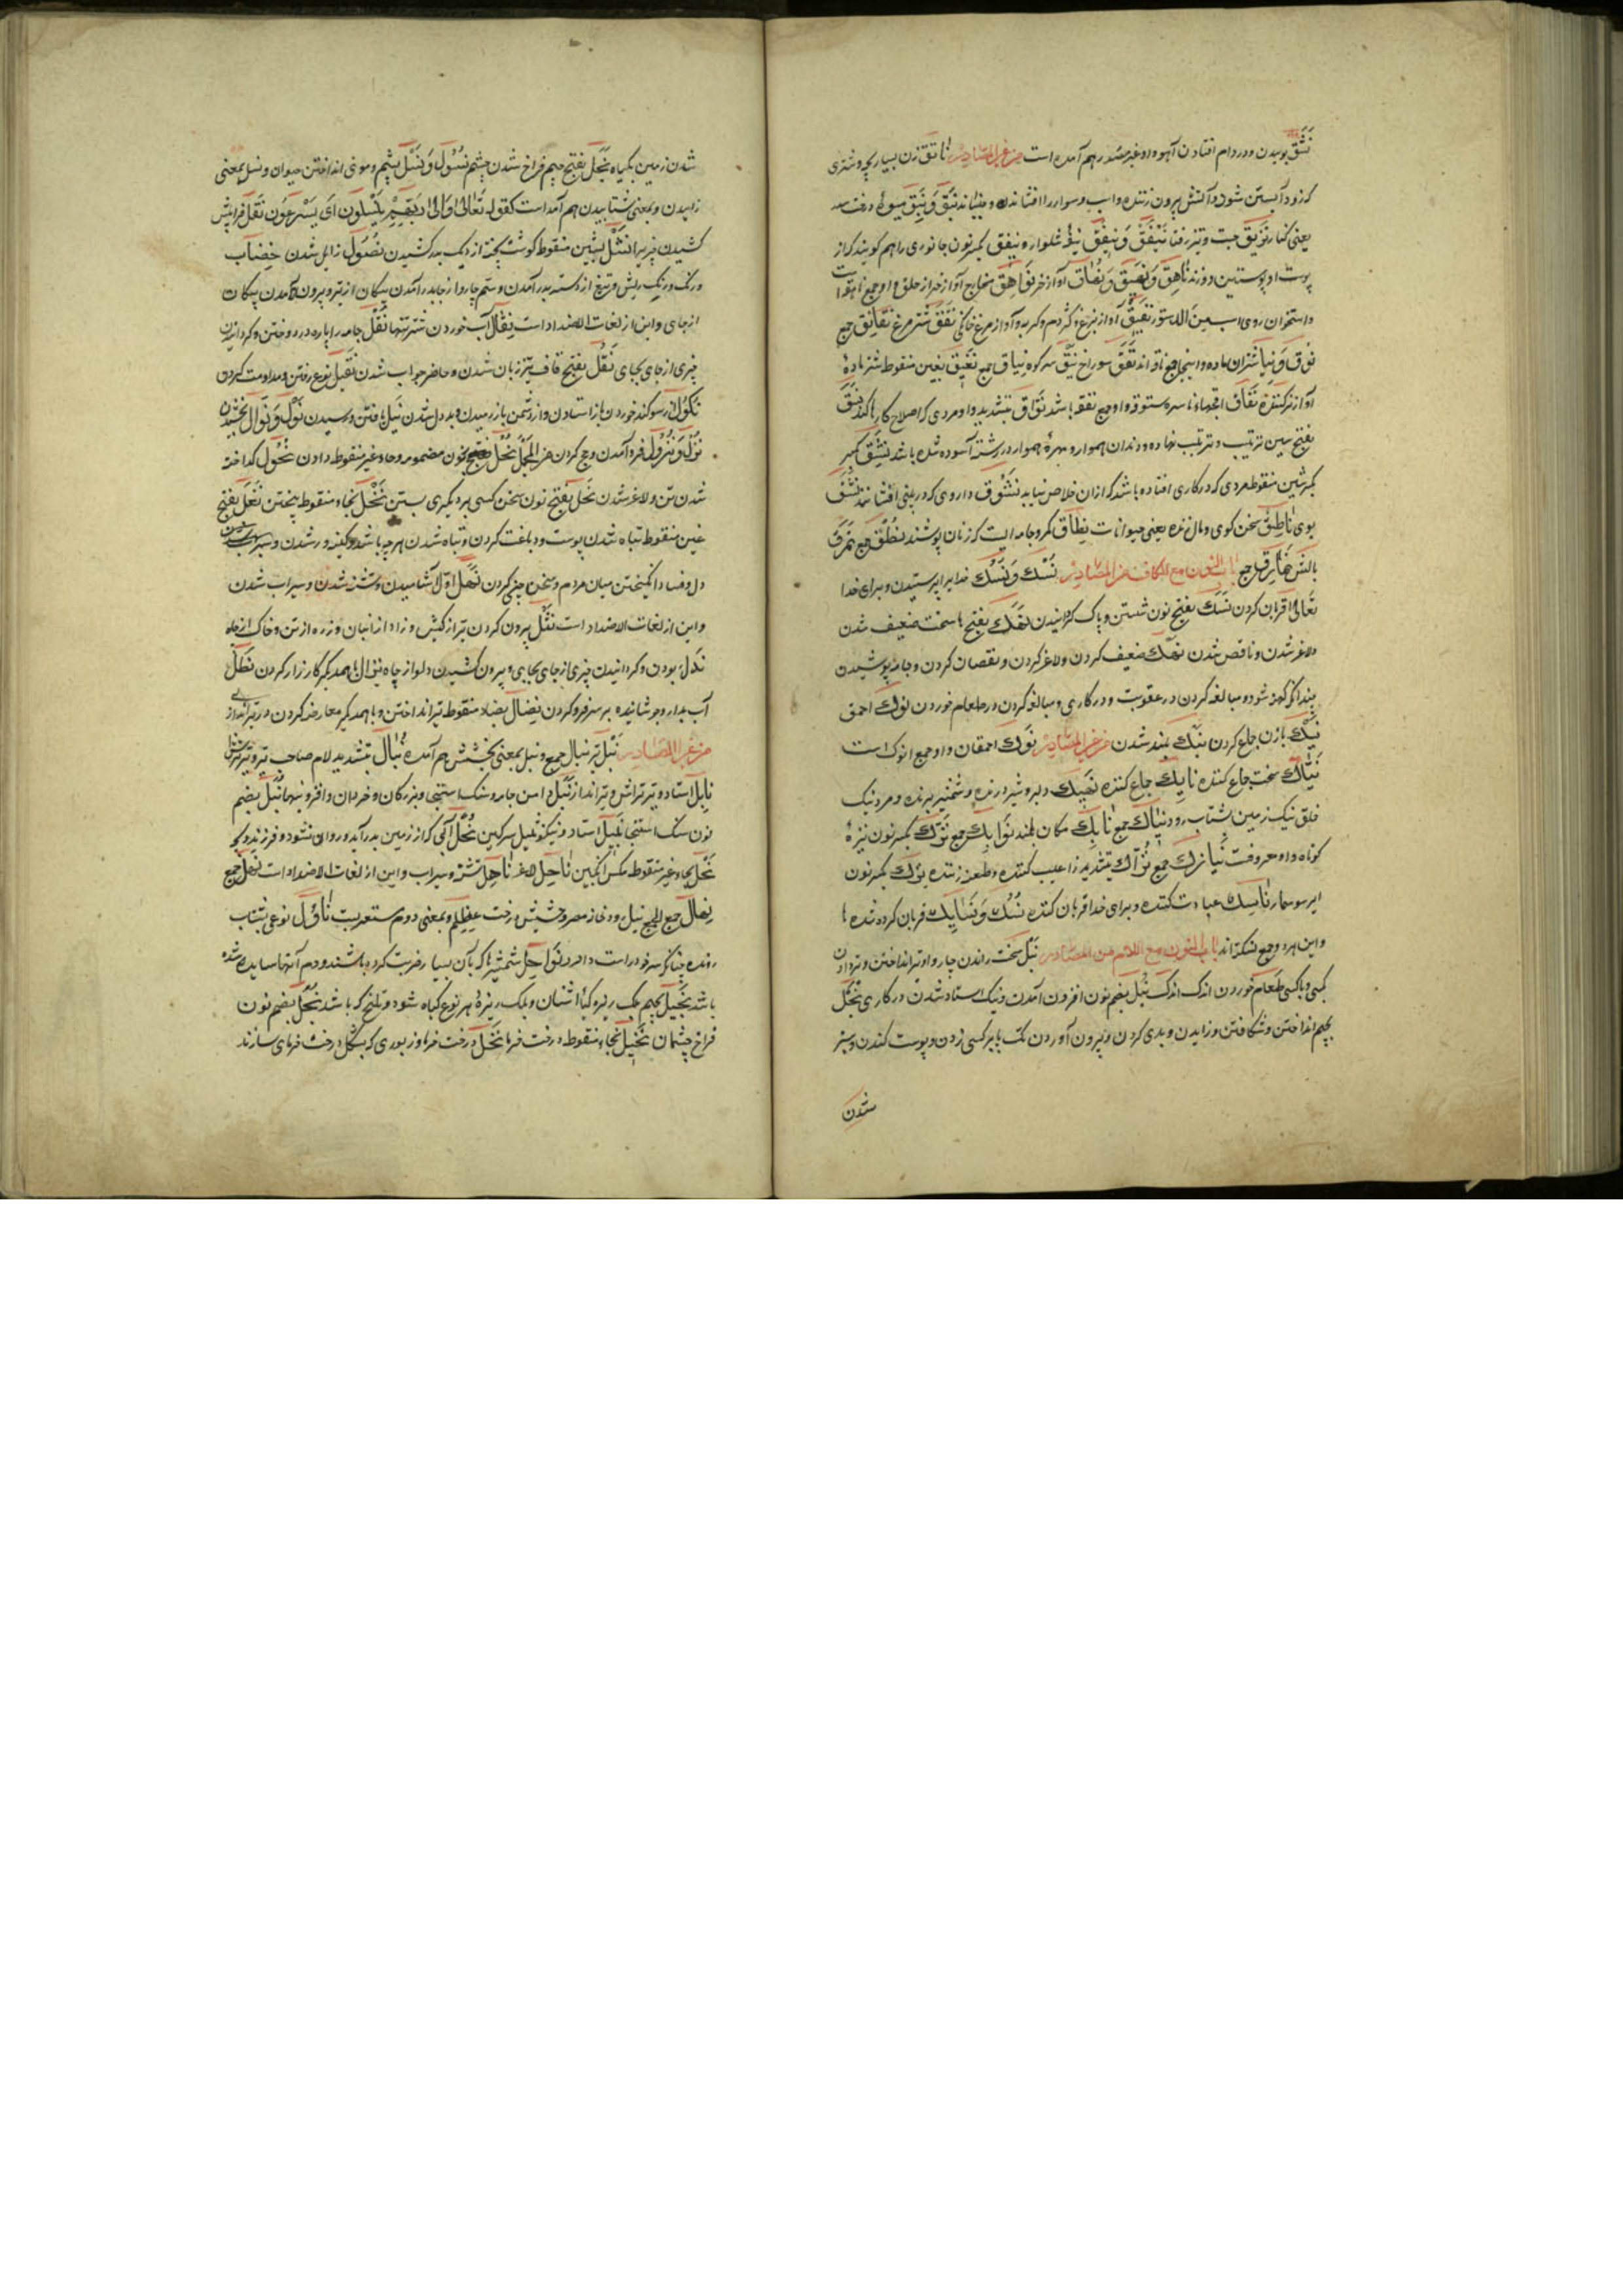 نَشَق بوییدن و در دام افتادن آهو و او غیر مصدر هم آمده است من غیر المصادر ناتق زن بسیار بچه و شتری
که زود آبستن شود و آتش بیرون زننده و اسب و سوار را افشاننده و جنباننده نَبَق وَ نَبِق میوهٔ درخت سدر
یعنی کنار نَزِق جست و تیز رفتار نَیْفَق وَ نِیفَق نیفهٔ شلوار و نیفق بکسر نون جانوری را هم گویند که از
پوست او پوستین دوزند نَاهِق وَ نَهِیق وَ نُهَاق آواز خر نَوَاهِق مخارج آواز خر از حلق و او جمع ناهق است
و استخوان روی اسب مِنَ الدستور نَقِیق آواز بزغ و کژدم و گربه و آواز مرغ خانگی نِقنِق شترمرغ نَقَانِق جمع
نُوق وَ نِیَاق شتران ماده و اینها جمع ناقه‌اند نَفَق سوراخ نِیق سر کوه نِیَاق جمع نَغِیق بغین منقوط شتر ماده
آواز نرم کننده نِفَاق و او جمع نفقه باشد نَوَّاق بتشدید واو مردی که اصلاح کارها کند نَسَق
بفتح سین ترتیب و ترتیب نهاده و دندان هموار و مهرهٔ هموار در رشته آسوده شده باشد نَشِق بکسر
بکسر شین منقوط مردی که در کاری افتاده باشد که از آن خلاص نیابد نَشُوق داروی که در بینی افشانند نَشَق
بوی نَاطِق سخن گوی و مال زنده یعنی حیوانات نِطَاق کمر و جامه ایست که زنان پوشند نُطُق جمع نُمرُق
بالش نَمَارِق جمع باب النون مع الکاف من المصادر نُسک وَ نَسک خدایرا پرستیدن و برای خدا
تعالی قربان کردن نَسَک بفتح نون شستن و پاک گردانیدن نَهَک بفتح ها سخت ضعیف شدن
و لاغر شدن و ناقص شدن نَهک ضعیف کردن و لاغر کردن و نقصان کردن و جامه پوشیدن
چندانکه کهنه شود و مبالغه کردن در عقوبت و در کاری و مبالغه کردن در طعام خوردن نوک احمق
نَیک با زن جماع کردن نَبک بلند شدن من غیر المصادر نَوک احمقان و او جمع انوک است
نَیَّاک سخت جماع کننده نَایِک جماع کننده نَهِیک دلیر و شیر درنده و شمشیر برنده و مرد نیک
خلق نیک زمین بشتاب رود نِبَاک جمع نَابِک مکان بلند نَوَابِک جمع نَیزَک بکسر نون نیزهٔ
کوتاه و او معروفست نَیَازِک جمع نَزَّاک بتشدید زا عیب کننده و طعنه زننده نِزک بکسر نون
ایر سوسمار نَاسِک عبادت کننده و برای خدا قربان کننده نُسُک وَ نَسَایِک قربان کرده شده‌ها
و این هر دو جمع نسیکه‌اند باب النون مع اللام من المصادر نَبل سخت راندن چاروا و تیر انداختن و تیر دادن
کسی و با کسی طعام خوردن اندک اندک نُبل بضم نون افزون آمدن و نیک استاد شدن در کاری نَجل
بجیم انداختن و شکافتن و زاییدن و بدی کردن و بیرون آوردن لگد یا بر کسی زدن و پوست کندن و سبز
شدن
شدن زمین بگیاه نَجَل بفتح جیم فراخ شدن چشم نُسُول وَ نَسل پشم و موی انداختن حیوان و نسل بمعنی
زاییدن و بمعنی شتابیدن هم آمده است کقوله تعالی الی ربهم ینسلون ای یسرعون نَقل فرا پیش
کشیدن چیزیرا نَشل بشین منقوط گوشت پخته از دیگ بدر کشیدن نُصُول زایل شدن خضاب
و رنگ و ریش و تیغ از دسته بدر آمدن و سم چاروا از جا بدر آمدن پیکان از تیر و بیرون آمدن پیکان
از جای و این از لغات الاضداد است نِقَال آب خوردن شتر تنها نَقل جامه را پاره در دوختن و گردانیدن
چیزی از جای بجای نَقَل بفتح قاف تیز زبان شدن و حاضر جواب شدن نَقِیل نوع رفتن و مداومت کردن
نُکُول از سوگند خوردن باز استادن و از دشمن باز رمیدن و بد دل شدن نَیل یافتن و رسیدن نَول وَ نَوَال بخشیدن
نُزُل وَ نُزُول فرود آمدن و حج کردن من المجمل نُحل بنون مضموم و حاء غیر منقوط دادن نُحُول گداخته
شدن تن و لاغر شدن نَحل بفتح نون سخن کسی بر دیگری بستن نَخل بخاء منقوط بیختن نَغَل بفتح
غین منقوط تباه شدن پوست و دباغت کردن و تباه شدن هر چه باشد و کینه ور شدن و
دل و فساد انگیختن میان مردم و سخن چینی کردن نَهَل اول آشامیدن و تشنه شدن و سیراب شدن
و این از لغات الاضداد است نَثل بیرون کردن تیر از کیش و زاد از انبان و زره از تن و خاک از چاه
نَدل ربودن و گردانیدن چیزی از جای بجایی و بیرون کشیدن دلو از چاه نِزَال با همدیگر کارزار کردن نَطل
آب بدارو جوشانیده بر سر فرو کردن نِضَال بضاد منقوط تیر انداختن و با همدیگر معارضه کردن در تیر اندازی
من غیر المصادر نَبل تیر نِبَال جمع و نبل بمعنی بخشش هم آمده نَبَّال بتشدید لام صاحب تیر و تیر تراش
نَابِل استاد و تیر تراش و تیر انداز نَبَل سنگ استنجا و بزرگان و خردان و افزونیها نُبل بضم
نون سنگ استنجا نَبِیل استاد و نیکو نَثِیل سرگین نَجل آبی که از زمین بدر آید و روان نشود و فرزند و بچه
نَحل بحاء غیر منقوط مگس انگبین نَاحِل لاغر نَاهِل تشنه و سیراب و این از لغات الاضداد است نَهَل جمع
نِهَال جمع الجمع نیل رودخانهٔ مصر و حشیش درخت عِظلِم و بمعنی دوم مستعربست
رونده چنانکه سر خود راست دارد نَوَاحِل شمشیرها که بآن بسیار ضربت کرده باشند و دم آنها ساییده شده
باشد نَجِیل بجیم ریزهٔ گیاه اشنان و برگ ریزهٔ هر نوع گیاه شور و تلخ که باشد نُجل بضم نون
فراخ چشمان نَخِیل بخاء منقوط درخت خرما نَخل درخت خرما و زیوری که بشکل درخت خرمای سازند